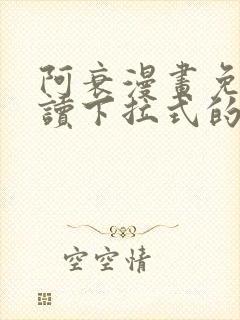 阿衰漫畫免
讀下拉式的
空空情